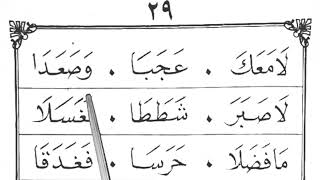 ٢٩
لَامَعَكَ . عَجَبَا . وَصَعَدَا
لَاصَبَرَ . شَطَطَا . غَسَلَا
مَافَضَلَا . حَرَسَا . فَغَدَقَا